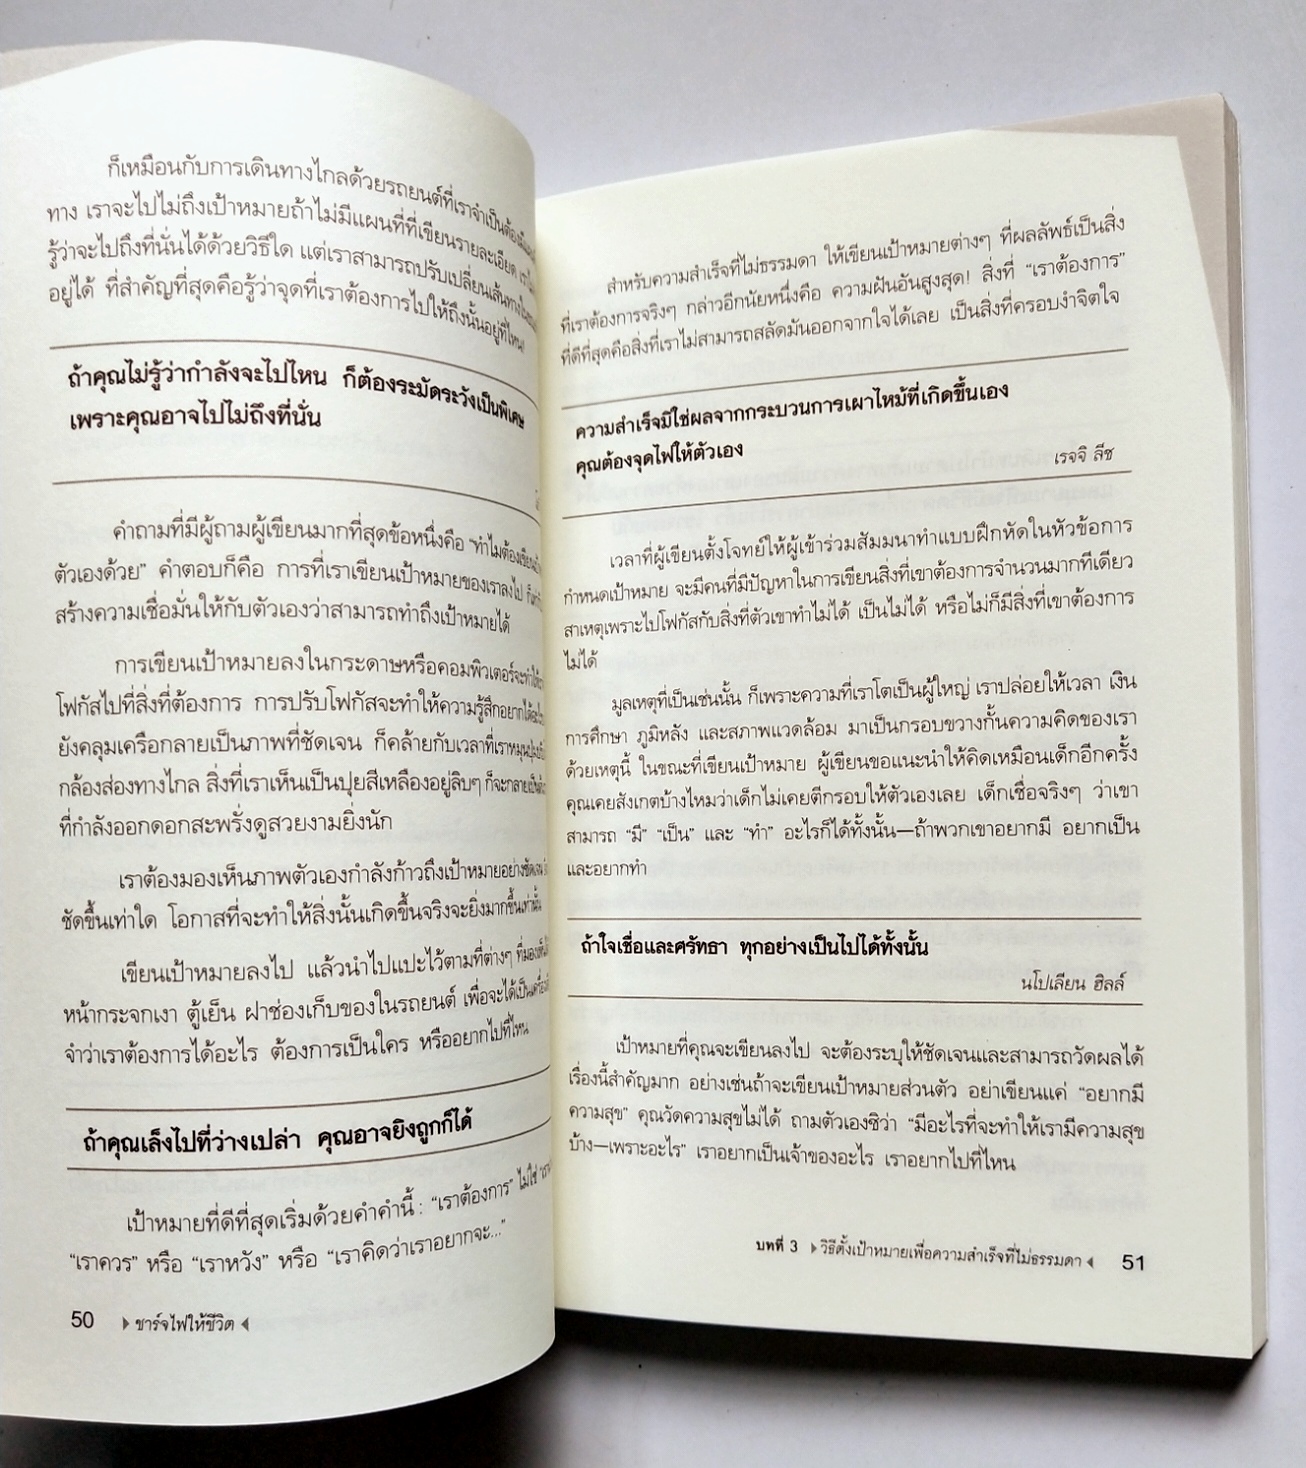 ก็เหมือนกับการเดินทางไกลด้วยรถยนต์ที่เราจำเป็นต้อง
ทาง เราจะไปไม่ถึงเป้าหมายถ้าไม่มีแผนที่ที่เขียนรายละเอียด
รู้ว่าจะไปถึงที่นั่นได้ด้วยวิธีใด แต่เราสามารถปรับเปลี่ยนเส้นทาง
อยู่ได้ ที่สำคัญที่สุดคือรู้ว่าจุดที่เราต้องการไปให้ถึงนั้นอยู่ที่ไหน!
ถ้าคุณไม่รู้ว่ากำลังจะไปไหน ก็ต้องระมัดระวังเป็นพิเศษ
เพราะคุณอาจไปไม่ถึงที่นั่น
คำถามที่มีผู้ถามผู้เขียนมากที่สุดข้อหนึ่งคือ “ทำไมต้องเขียน
ตัวเองด้วย” คำตอบก็คือ การที่เราเขียนเป้าหมายของเราลงไป
สร้างความเชื่อมั่นให้กับตัวเองว่าสามารถทำถึงเป้าหมายได้
การเขียนเป้าหมายลงในกระดาษหรือคอมพิวเตอร์จะทำให้
โฟกัสไปที่สิ่งที่ต้องการ การปรับโฟกัสจะทำให้ความรู้สึกอยากได้
ยังคลุมเครือกลายเป็นภาพที่ชัดเจน ก็คล้ายกับเวลาที่เราหมุนปุ่ม
กล้องส่องทางไกล สิ่งที่เราเห็นเป็นปุยสีเหลืองอยู่ลิบๆ ก็จะกลายเป็น
ที่กำลังออกดอกสะพรั่งดูสวยงามยิ่งนัก
เราต้องมองเห็นภาพตัวเองกำลังก้าวถึงเป้าหมายอย่างชัดเจน
ชัดขึ้นเท่าใด โอกาสที่จะทำให้สิ่งนั้นเกิดขึ้นจริงจะยิ่งมากขึ้นเท่านั้น
เขียนเป้าหมายลงไป แล้วนำไปแปะไว้ตามที่ต่างๆ
หน้ากระจกเงา ตู้เย็น ฝาช่องเก็บของในรถยนต์ เพื่อจะได้เป็น
จำว่าเราต้องการได้อะไร ต้องการเป็นใคร หรืออยากไปที่ไหน
ถ้าคุณเล็งไปที่ว่างเปล่า คุณอาจยิงถูกก็ได้
เป้าหมายที่ดีที่สุดเริ่มด้วยคำคำนี้ : “เราต้องการ” ไม่ใช่
“เราควร” หรือ “เราหวัง” หรือ “เราคิดว่าเราอยากจะ...”
50 ชาร์จไฟให้ชีวิต
สำหรับความสำเร็จที่ไม่ธรรมดา ให้เขียนเป้าหมายต่างๆ ที่ผลลัพธ์เป็นสิ่ง
ที่เราต้องการจริงๆ กล่าวอีกนัยหนึ่งคือ ความฝันอันสูงสุด! สิ่งที่ “เราต้องการ”
ที่ดีที่สุดคือสิ่งที่เราไม่สามารถสลัดมันออกจากใจได้เลย เป็นสิ่งที่ครอบงำจิตใจ
ความสำเร็จมิใช่ผลจากกระบวนการเผาไหม้ที่เกิดขึ้นเอง
คุณต้องจุดไฟให้ตัวเอง
เรจจิ ลีช
เวลาที่ผู้เขียนตั้งโจทย์ให้ผู้เข้าร่วมสัมมนาทำแบบฝึกหัดในหัวข้อการ
กำหนดเป้าหมาย จะมีคนที่มีปัญหาในการเขียนสิ่งที่เขาต้องการจำนวนมากทีเดียว
สาเหตุเพราะไปโฟกัสกับสิ่งที่ตัวเขาทำไม่ได้ เป็นไม่ได้ หรือไม่ก็มีสิ่งที่เขาต้องการ
ไม่ได้
มูลเหตุที่เป็นเช่นนั้น ก็เพราะความที่เราโตเป็นผู้ใหญ่ เราปล่อยให้เวลา เงิน
การศึกษา ภูมิหลัง และสภาพแวดล้อม มาเป็นกรอบขวางกั้นความคิดของเรา
ด้วยเหตุนี้ ในขณะที่เขียนเป้าหมาย ผู้เขียนขอแนะนำให้คิดเหมือนเด็กอีกครั้ง
คุณเคยสังเกตบ้างไหมว่าเด็กไม่เคยตีกรอบให้ตัวเองเลย เด็กเชื่อจริงๆ ว่าเขา
สามารถ “มี” “เป็น” และ “ทำ” อะไรก็ได้ทั้งนั้น—ถ้าพวกเขาอยากมี อยากเป็น
และอยากทำ
ถ้าใจเชื่อและศรัทธา ทุกอย่างเป็นไปได้ทั้งนั้น
นโปเลียน ฮิลล์
เป้าหมายที่คุณจะเขียนลงไป จะต้องระบุให้ชัดเจนและสามารถวัดผลได้
เรื่องนี้สำคัญมาก อย่างเช่นถ้าจะเขียนเป้าหมายส่วนตัว อย่าเขียนแค่ “อยากมี
ความสุข” คุณวัดความสุขไม่ได้ ถามตัวเองซิว่า “มีอะไรที่จะทำให้เรามีความสุข
บ้าง—เพราะอะไร” เราอยากเป็นเจ้าของอะไร เราอยากไปที่ไหน
บทที่ 3 วิธีตั้งเป้าหมายเพื่อความสำเร็จที่ไม่ธรรมดา 51